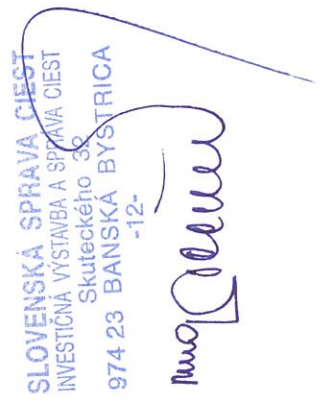 SLOVENSKÁ SPRÁVA CIEST
INVESTIČNÁ VÝSTAVBA A SPRÁVA CIEST
Skuteckého 32
974 23 BANSKÁ BYSTRICA
-12-